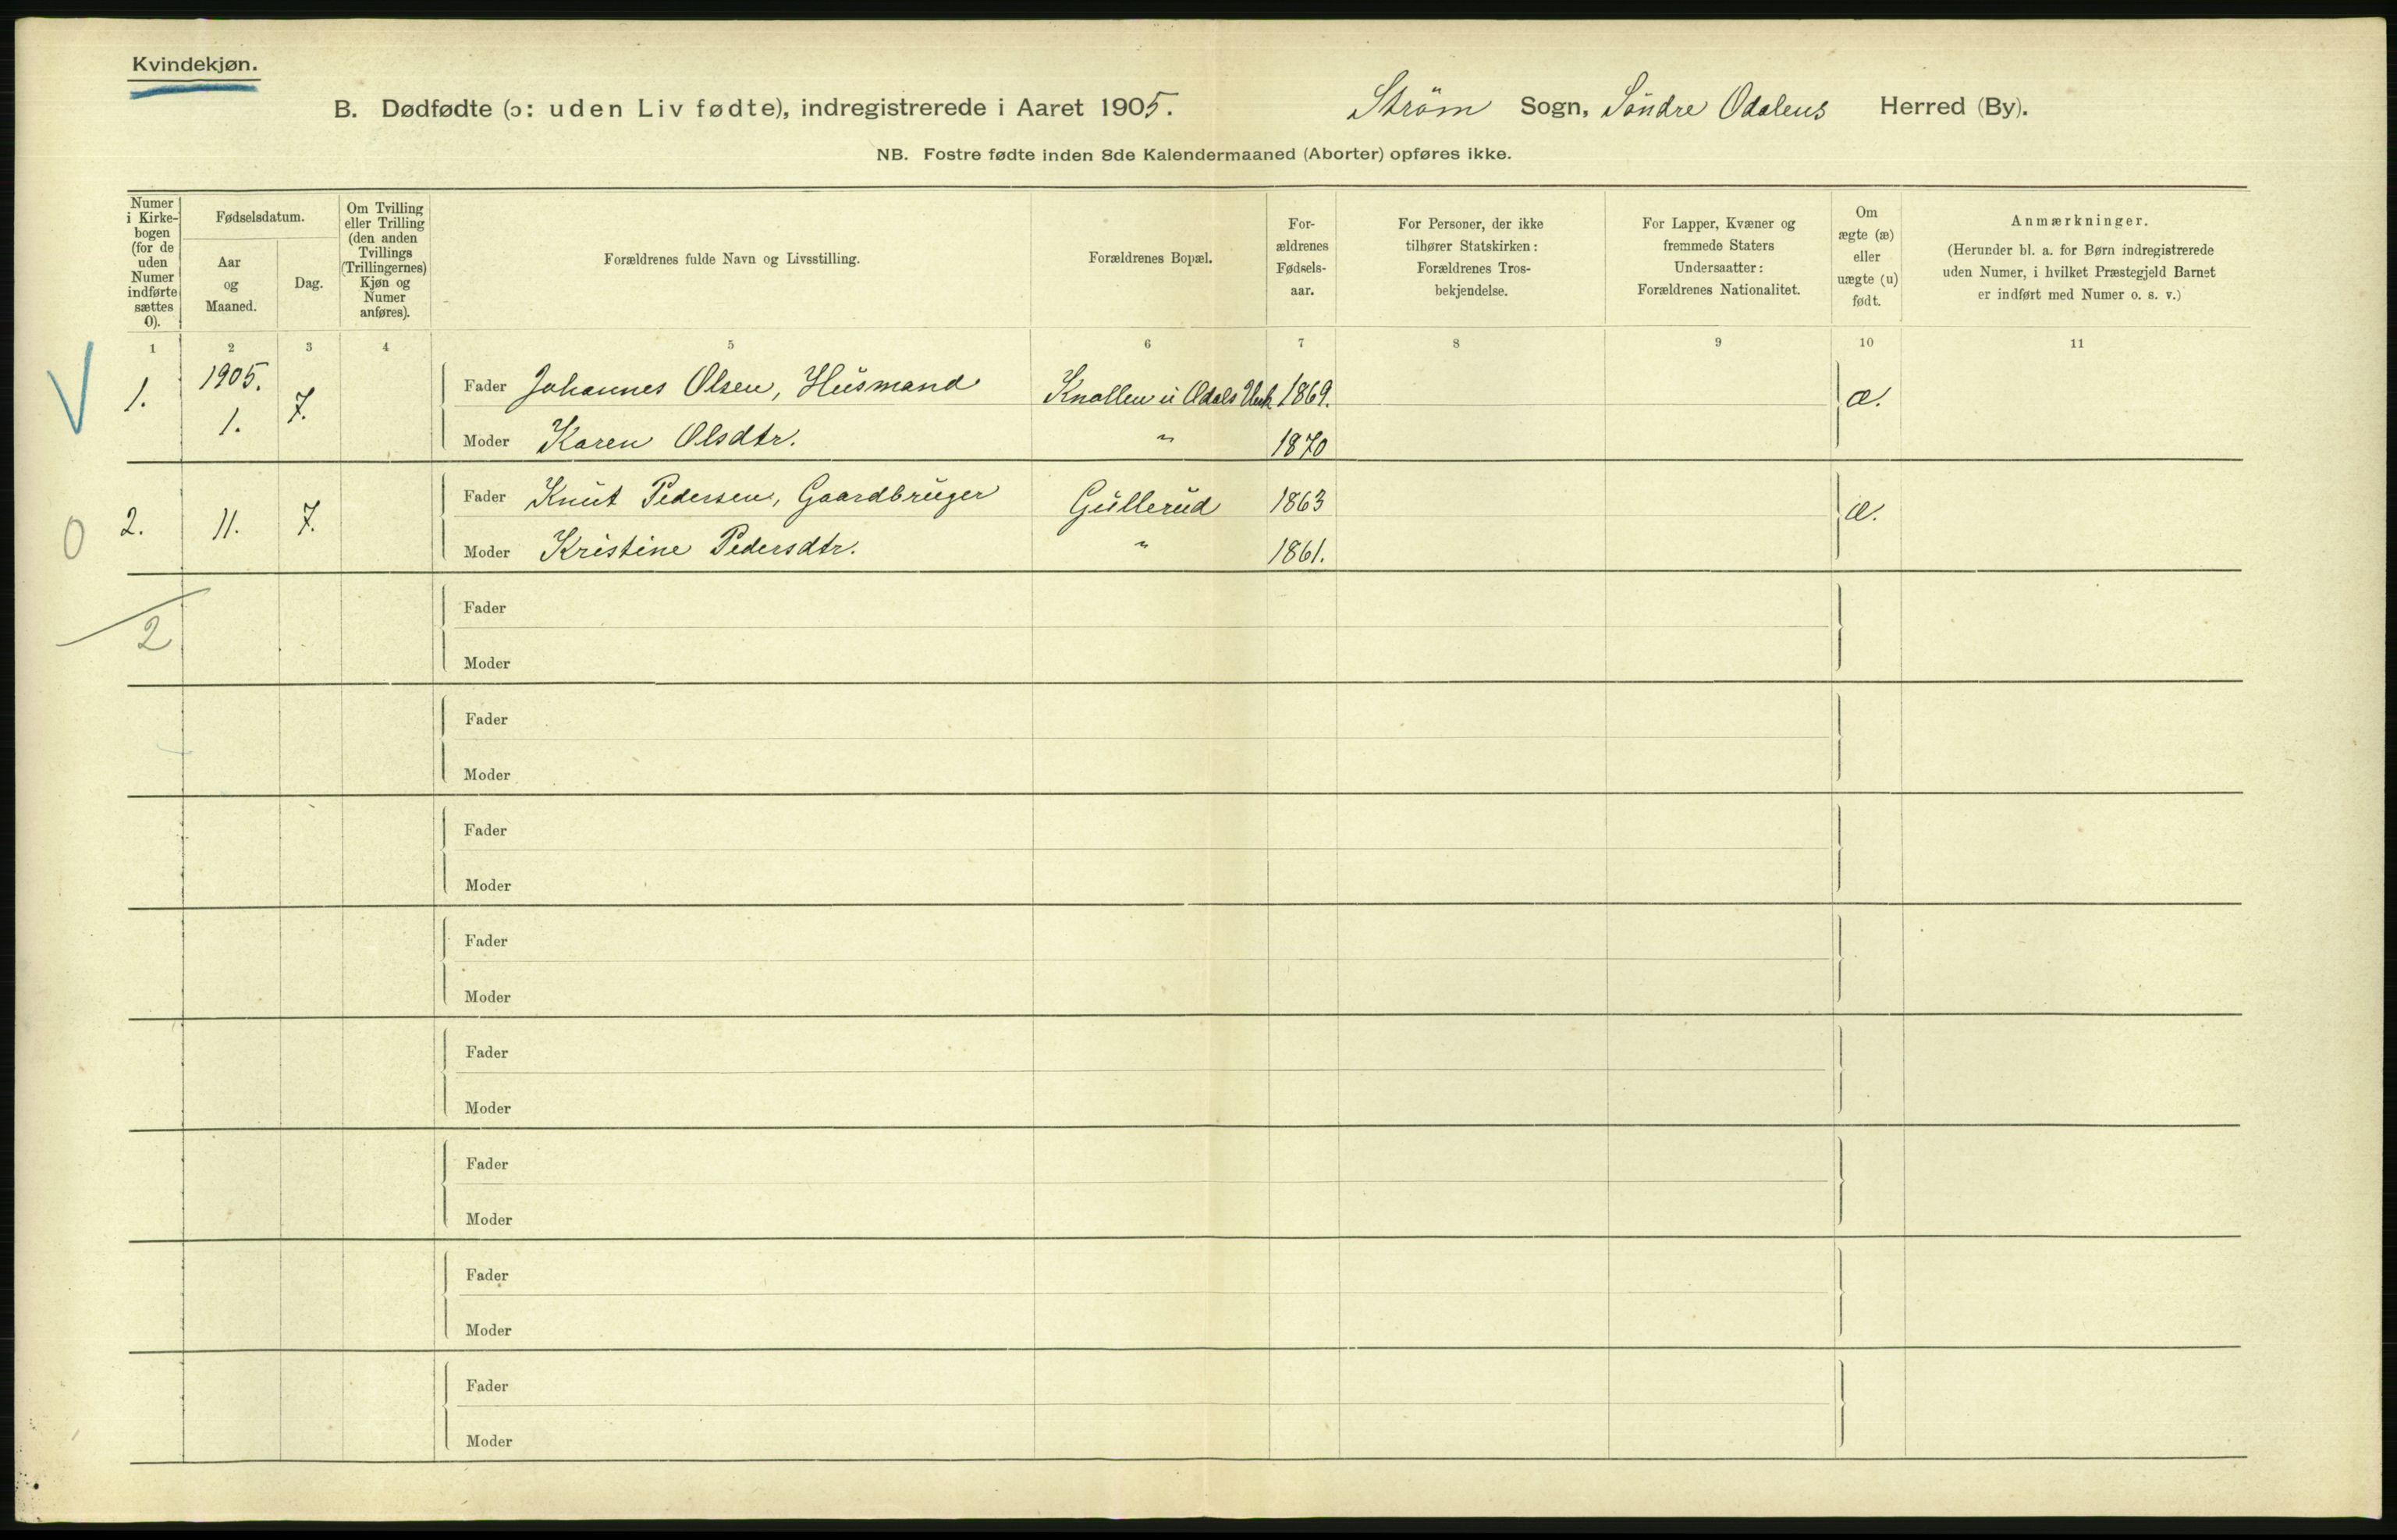 Kvindekjøn.
B. Dødfødte (ɔ: uden Liv fødte), indregistrerede i Aaret 1905. Ström Sogn, Söndre Odalens Herred (By).
NB. Fostre fødte inden 8de Kalendermaaned (Aborter) opføres ikke.
Numer i Kirkebogen (for de uden Numer indførte sættes 0).
Fødselsdatum.
Aar og Maaned.
Dag.
Om Tvilling eller Trilling (den anden Tvillings (Trillingernes) Kjøn og Numer anføres).
Forældrenes fulde Navn og Livsstilling.
Forældrenes Bopæl.
For-
ældrenes
Fødsels-
aar.
For Personer, der ikke
tilhører Statskirken:
Forældrenes Tros-
bekjendelse.
For Lapper, Kvæner og
fremmede Staters
Undersaatter:
Forældrenes Nationalitet.
Om
ægte (æ)
eller
uægte (u)
født.
Anmærkninger.
(Herunder bl. a. for Børn indregistrerede
uden Numer, i hvilket Præstegjeld Barnet
er indført med Numer o. s. v.)
1 2 3 4 5 6 7 8 9 10 11
V 1. 1905. 1. 7. Fader Johannes Olsen, Husmand Knollen u Odals Verk 1869. æ.
Moder Karen Olsdtr. " 1870
0 2. 11. 7. Fader Knut Pedersen, Gaardbruger Gullerud 1863 æ.
Moder Kristine Pedersdtr. " 1861.
2
Fader
Moder
Fader
Moder
Fader
Moder
Fader
Moder
Fader
Moder
Fader
Moder
Fader
Moder
Fader
Moder